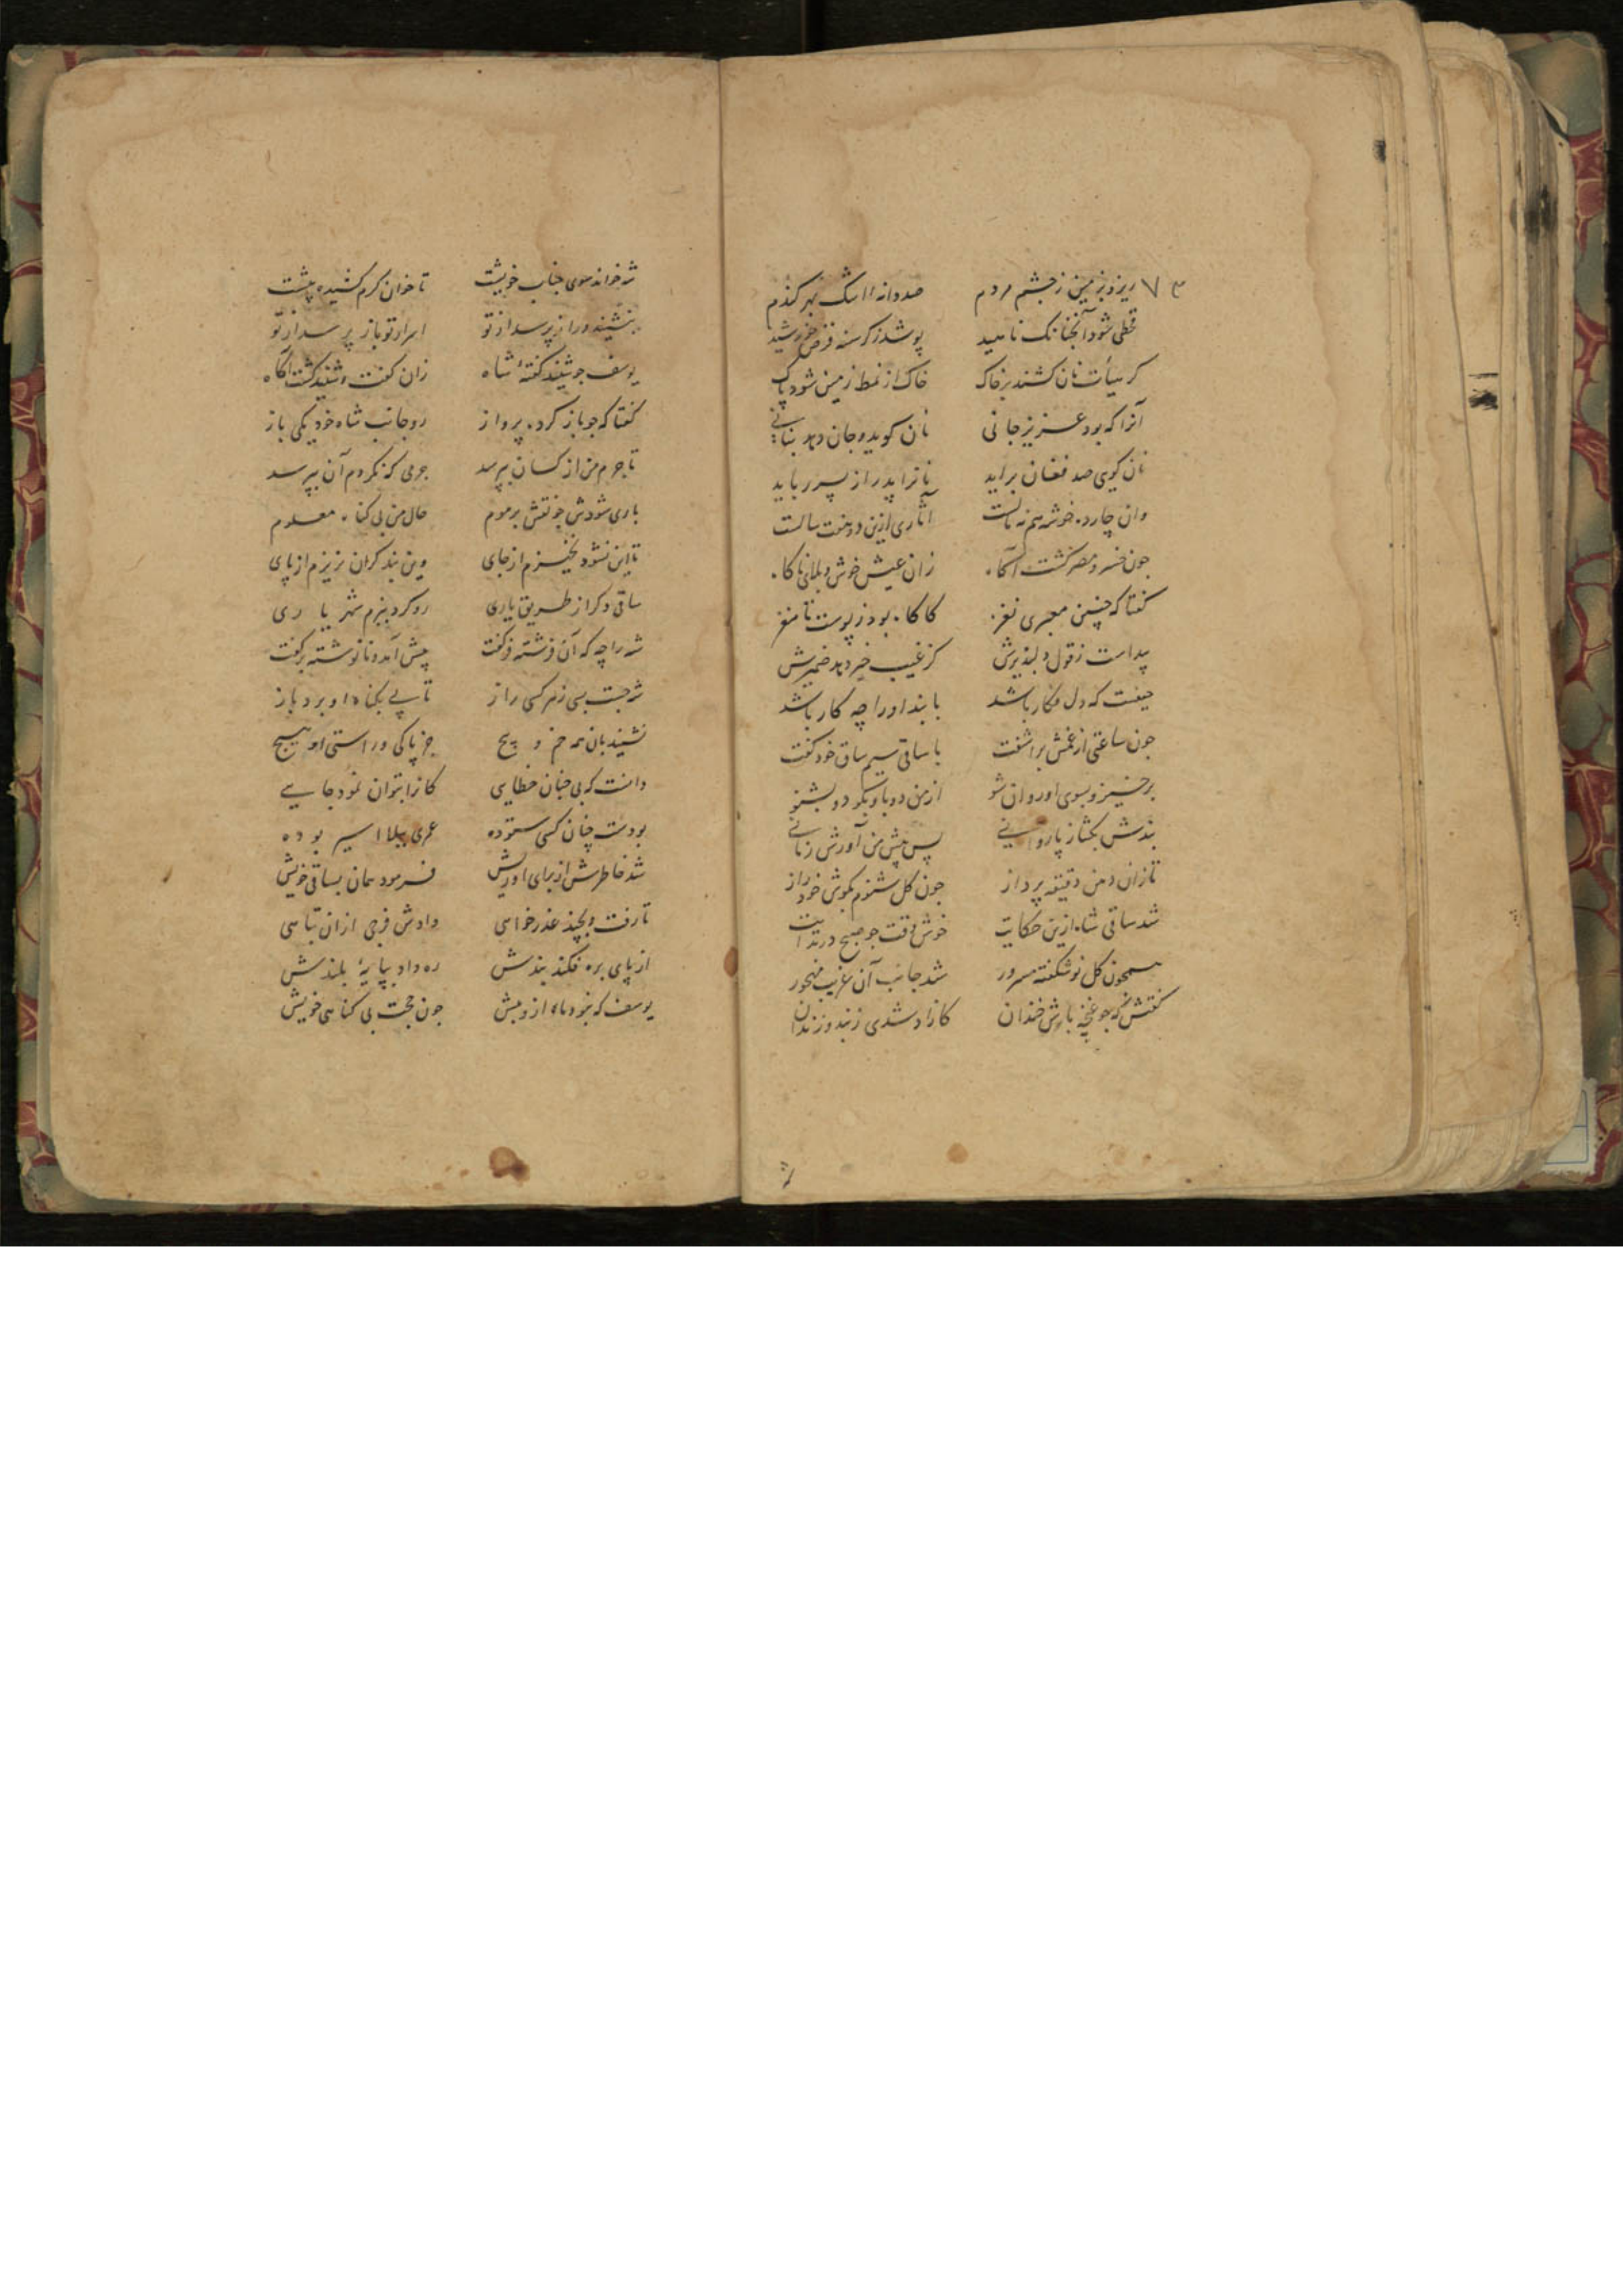 ریزد بزمین ز چشم مردم صد دانه اشک بهر گندم
قطی شود آنچنانک ناهید پوشد ز گرسنه قرص خورشید
خاک از نمط زمین شود پاک
آنرا که بود عزیز جانی نان گوید و جان دهد
نان گوی صد فغان براید نانرا پدر از پسر رباید
وان چارده خوشه هم نه آثاری ازین دو هفت سالست
جون خسرو مصر گشت آگاه زان عیش خوش و بلای ناگاه
گفتا که چنین معبری نغز کاگاه بود ز پوست تا مغز
پیداست ز قول دلپذیرش کز غیب خبر دهد ضمیرش
حیفست که دل فکار باشد با بند او را چه کار باشد
جون ساعتی از غمش براشفت با ساقی سیم ساق خود گفت
برخیز و بسوی او روان شو از من دو باو بگو دو بشنو
بندش بگشا ز پا روانی پس پیش من آورش زمانی
تا زان دهن دقیقه پرداز جون گل شنوم بگوش خود راز
شد ساقی شاه ازین حکایت خوش وقت جو صبح در
همچون گل نوشکفته مسرور شد جانب آن غریب مهجور
گفتش که جو غنچه باش خندان کازاد شدی ز بند و زندان
۷۳
شه خواند سوی جناب خویشت تا خوان کرم کشیده پیشت
بنشیند و راز پرسد از تو اسرار تو باز پرسد از تو
یوسف جو شنید گفتهٔ شاه زان گفت و شنید گشت آگاه
گفتا که جو باز کرد پرواز رو جانب شاه خود یکی باز
تا جرم من از کسان بپرسد جرمی که نکردم آن بپرسد
باری شودش جو نقش بر موم حال من بی گناه معلوم
تا این نشود نخیزم از جای وین بند گران نریزم از پای
ساقی دگر از طریق یاری رو کرد ببزم شهریاری
شه را چه که آن فرشته فر گفت پیش آمد و نانوشته بر گفت
شه جست بسی ز هر کسی راز تا پی بگناه او برد باز
نشنید بان همه خم و پیچ جز پاکی و راستی او هیچ
دانست که بی چنان خطایی کانرا بتوان نمود جایی
بودست چنان کسی ستوده عمری ببلا اسیر بوده
شد خاطرش از برای او ریش فرمود همان بساقی خویش
تا رفت و بچند عذر خواهی دادش فرجی ازان تباهی
از پای بره فکند بندش ره داد بپایهٔ بلندش
یوسف که نبود ماه ازو بیش جون حجت بی گناهی خویش